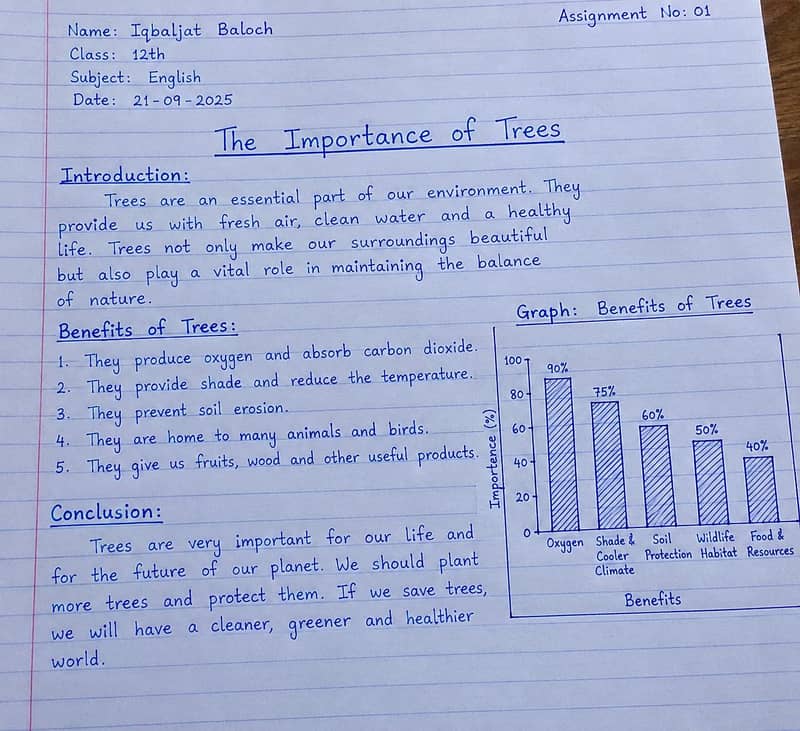 Assignment No: 01
Name: Iqbaljat Baloch
Class: 12th
Subject: English
Date: 21-09-2025
The Importance of Trees
Introduction:
Trees are an essential part of our environment. They
provide us with fresh air, clean water and a healthy
life. Trees not only make our surroundings beautiful
but also play a vital role in maintaining the balance
of nature.
Benefits of Trees:
1. They produce oxygen and absorb carbon dioxide.
2. They provide shade and reduce the temperature.
3. They prevent soil erosion.
4. They are home to many animals and birds.
5. They give us fruits, wood and other useful products.
Conclusion:
Trees are very important for our life and
for the future of our planet. We should plant
more trees and protect them. If we save trees,
we will have a cleaner, greener and healthier
world.
Graph: Benefits of Trees
Importance (%)
100
80
60
40
20
0
90%
75%
60%
50%
40%
Oxygen
Shade &
Cooler
Climate
Soil
Protection
Wildlife
Habitat
Food &
Resources
Benefits